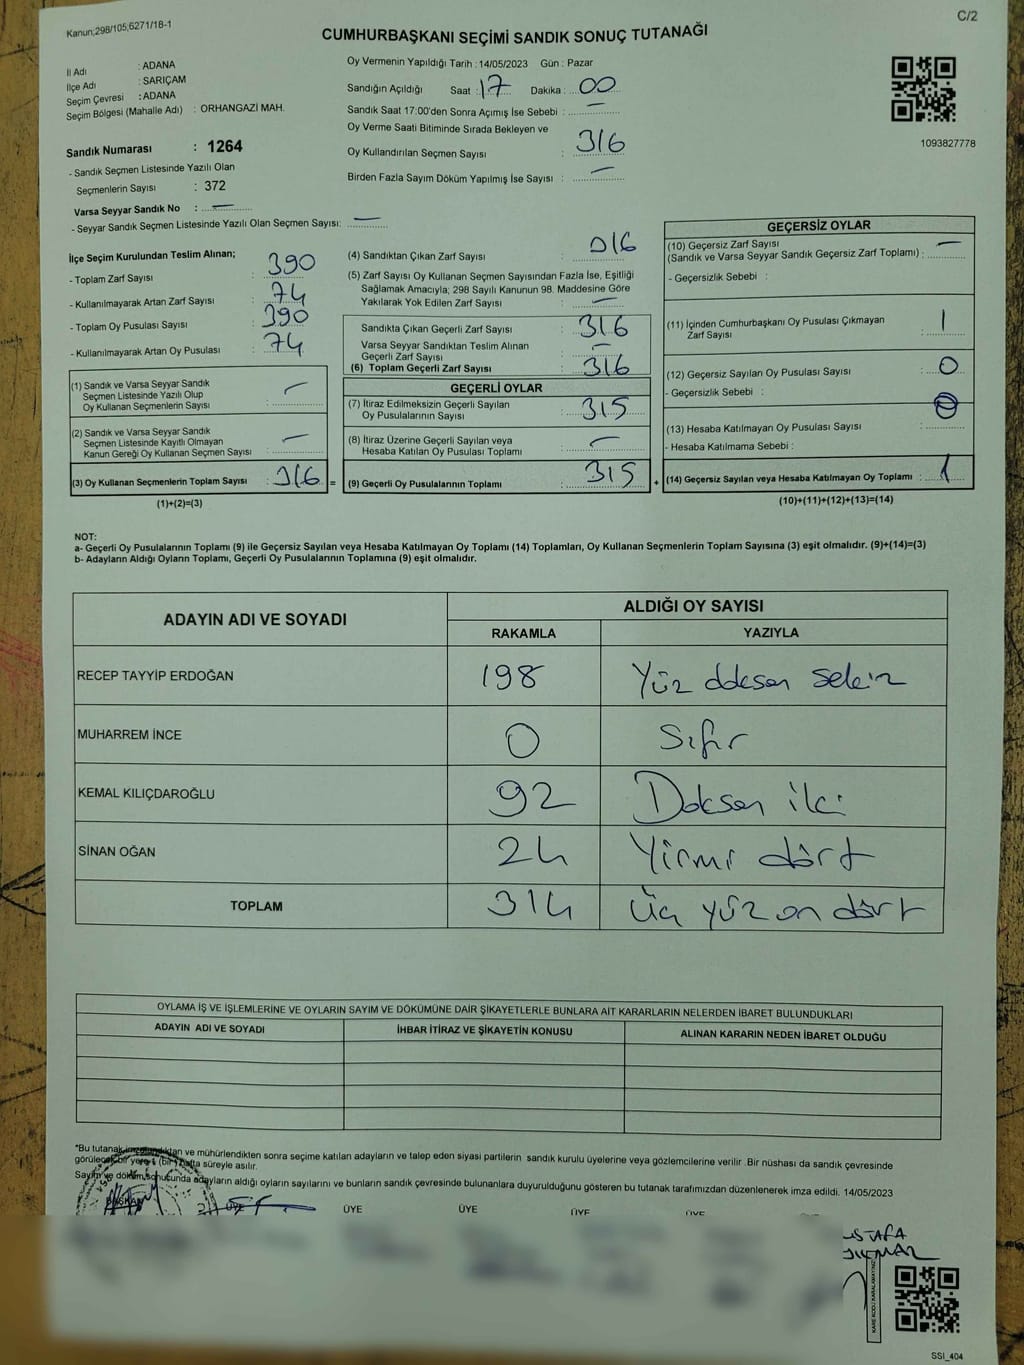 Kanun;298/105,6271/18-1
C/2
CUMHURBAŞKANI SEÇİMİ SANDIK SONUÇ TUTANAĞI
İl Adı : ADANA
İlçe Adı : SARIÇAM
Seçim Çevresi : ADANA
Seçim Bölgesi (Mahalle Adı) : ORHANGAZİ MAH.
Sandık Numarası : 1264
- Sandık Seçmen Listesinde Yazılı Olan
Seçmenlerin Sayısı : 372
Varsa Seyyar Sandık No : —
- Seyyar Sandık Seçmen Listesinde Yazılı Olan Seçmen Sayısı: —
Oy Vermenin Yapıldığı Tarih : 14/05/2023 Gün : Pazar
Sandığın Açıldığı Saat : 17 Dakika : 00
Sandık Saat 17:00'den Sonra Açımış İse Sebebi : —
Oy Verme Saati Bitiminde Sırada Bekleyen ve
Oy Kullandırılan Seçmen Sayısı : 316
Birden Fazla Sayım Döküm Yapılmış İse Sayısı : —
1093827778
İlçe Seçim Kurulundan Teslim Alınan;
- Toplam Zarf Sayısı : 390
- Kullanılmayarak Artan Zarf Sayısı : 74
- Toplam Oy Pusulası Sayısı : 390
- Kullanılmayarak Artan Oy Pusulası : 74
(1) Sandık ve Varsa Seyyar Sandık
Seçmen Listesinde Yazılı Olup
Oy Kullanan Seçmenlerin Sayısı : —
(2) Sandık ve Varsa Seyyar Sandık
Seçmen Listesinde Kayıtlı Olmayan
Kanun Gereği Oy Kullanan Seçmen Sayısı : —
(3) Oy Kullanan Seçmenlerin Toplam Sayısı : 316 =
(1)+(2)=(3)
(4) Sandıktan Çıkan Zarf Sayısı : 316
(5) Zarf Sayısı Oy Kullanan Seçmen Sayısından Fazla İse, Eşitliği
Sağlamak Amacıyla; 298 Sayılı Kanunun 98. Maddesine Göre
Yakılarak Yok Edilen Zarf Sayısı : —
Sandıkta Çıkan Geçerli Zarf Sayısı : 316
Varsa Seyyar Sandıktan Teslim Alınan
Geçerli Zarf Sayısı : —
(6) Toplam Geçerli Zarf Sayısı : 316
GEÇERLİ OYLAR
(7) İtiraz Edilmeksizin Geçerli Sayılan
Oy Pusulalarının Sayısı : 315
(8) İtiraz Üzerine Geçerli Sayılan veya
Hesaba Katılan Oy Pusulası Toplamı : —
(9) Geçerli Oy Pusulalarının Toplamı : 315 +
GEÇERSİZ OYLAR
(10) Geçersiz Zarf Sayısı
(Sandık ve Varsa Seyyar Sandık Geçersiz Zarf Toplamı) : —
- Geçersizlik Sebebi :
(11) İçinden Cumhurbaşkanı Oy Pusulası Çıkmayan
Zarf Sayısı : 1
(12) Geçersiz Sayılan Oy Pusulası Sayısı : 0
- Geçersizlik Sebebi :
(13) Hesaba Katılmayan Oy Pusulası Sayısı : 0
- Hesaba Katılmama Sebebi :
(14) Geçersiz Sayılan veya Hesaba Katılmayan Oy Toplamı : 1
(10)+(11)+(12)+(13)=(14)
NOT:
a- Geçerli Oy Pusulalarının Toplamı (9) ile Geçersiz Sayılan veya Hesaba Katılmayan Oy Toplamı (14) Toplamları, Oy Kullanan Seçmenlerin Toplam Sayısına (3) eşit olmalıdır. (9)+(14)=(3)
b- Adayların Aldığı Oyların Toplamı, Geçerli Oy Pusulalarının Toplamına (9) eşit olmalıdır.
ADAYIN ADI VE SOYADI ALDIĞI OY SAYISI
RAKAMLA YAZIYLA
RECEP TAYYİP ERDOĞAN 198 Yüz doksan sekiz
MUHARREM İNCE 0 Sıfır
KEMAL KILIÇDAROĞLU 92 Doksan iki
SİNAN OĞAN 24 Yirmi dört
TOPLAM 314 Üç yüz on dört
OYLAMA İŞ VE İŞLEMLERİNE VE OYLARIN SAYIM VE DÖKÜMÜNE DAİR ŞİKAYETLERLE BUNLARA AİT KARARLARIN NELERDEN İBARET BULUNDUKLARI
ADAYIN ADI VE SOYADI İHBAR İTİRAZ VE ŞİKAYETİN KONUSU ALINAN KARARIN NEDEN İBARET OLDUĞU
*Bu tutanak imzalandıktan ve mühürlendikten sonra seçime katılan adayların ve talep eden siyasi partilerin sandık kurulu üyelerine veya gözlemcilerine verilir. Bir nüshası da sandık çevresinde
görülecek bir yere 1 (bir) hafta süreyle asılır.
Sayım ve döküm sonucunda adayların aldığı oyların sayılarını ve bunların sandık çevresinde bulunanlara duyurulduğunu gösteren bu tutanak tarafımızdan düzenlenerek imza edildi. 14/05/2023
BAŞKAN ÜYE ÜYE ÜYE ÜYE ÜYE
KARE KODU KARALAMAYINIZ
SSI_404